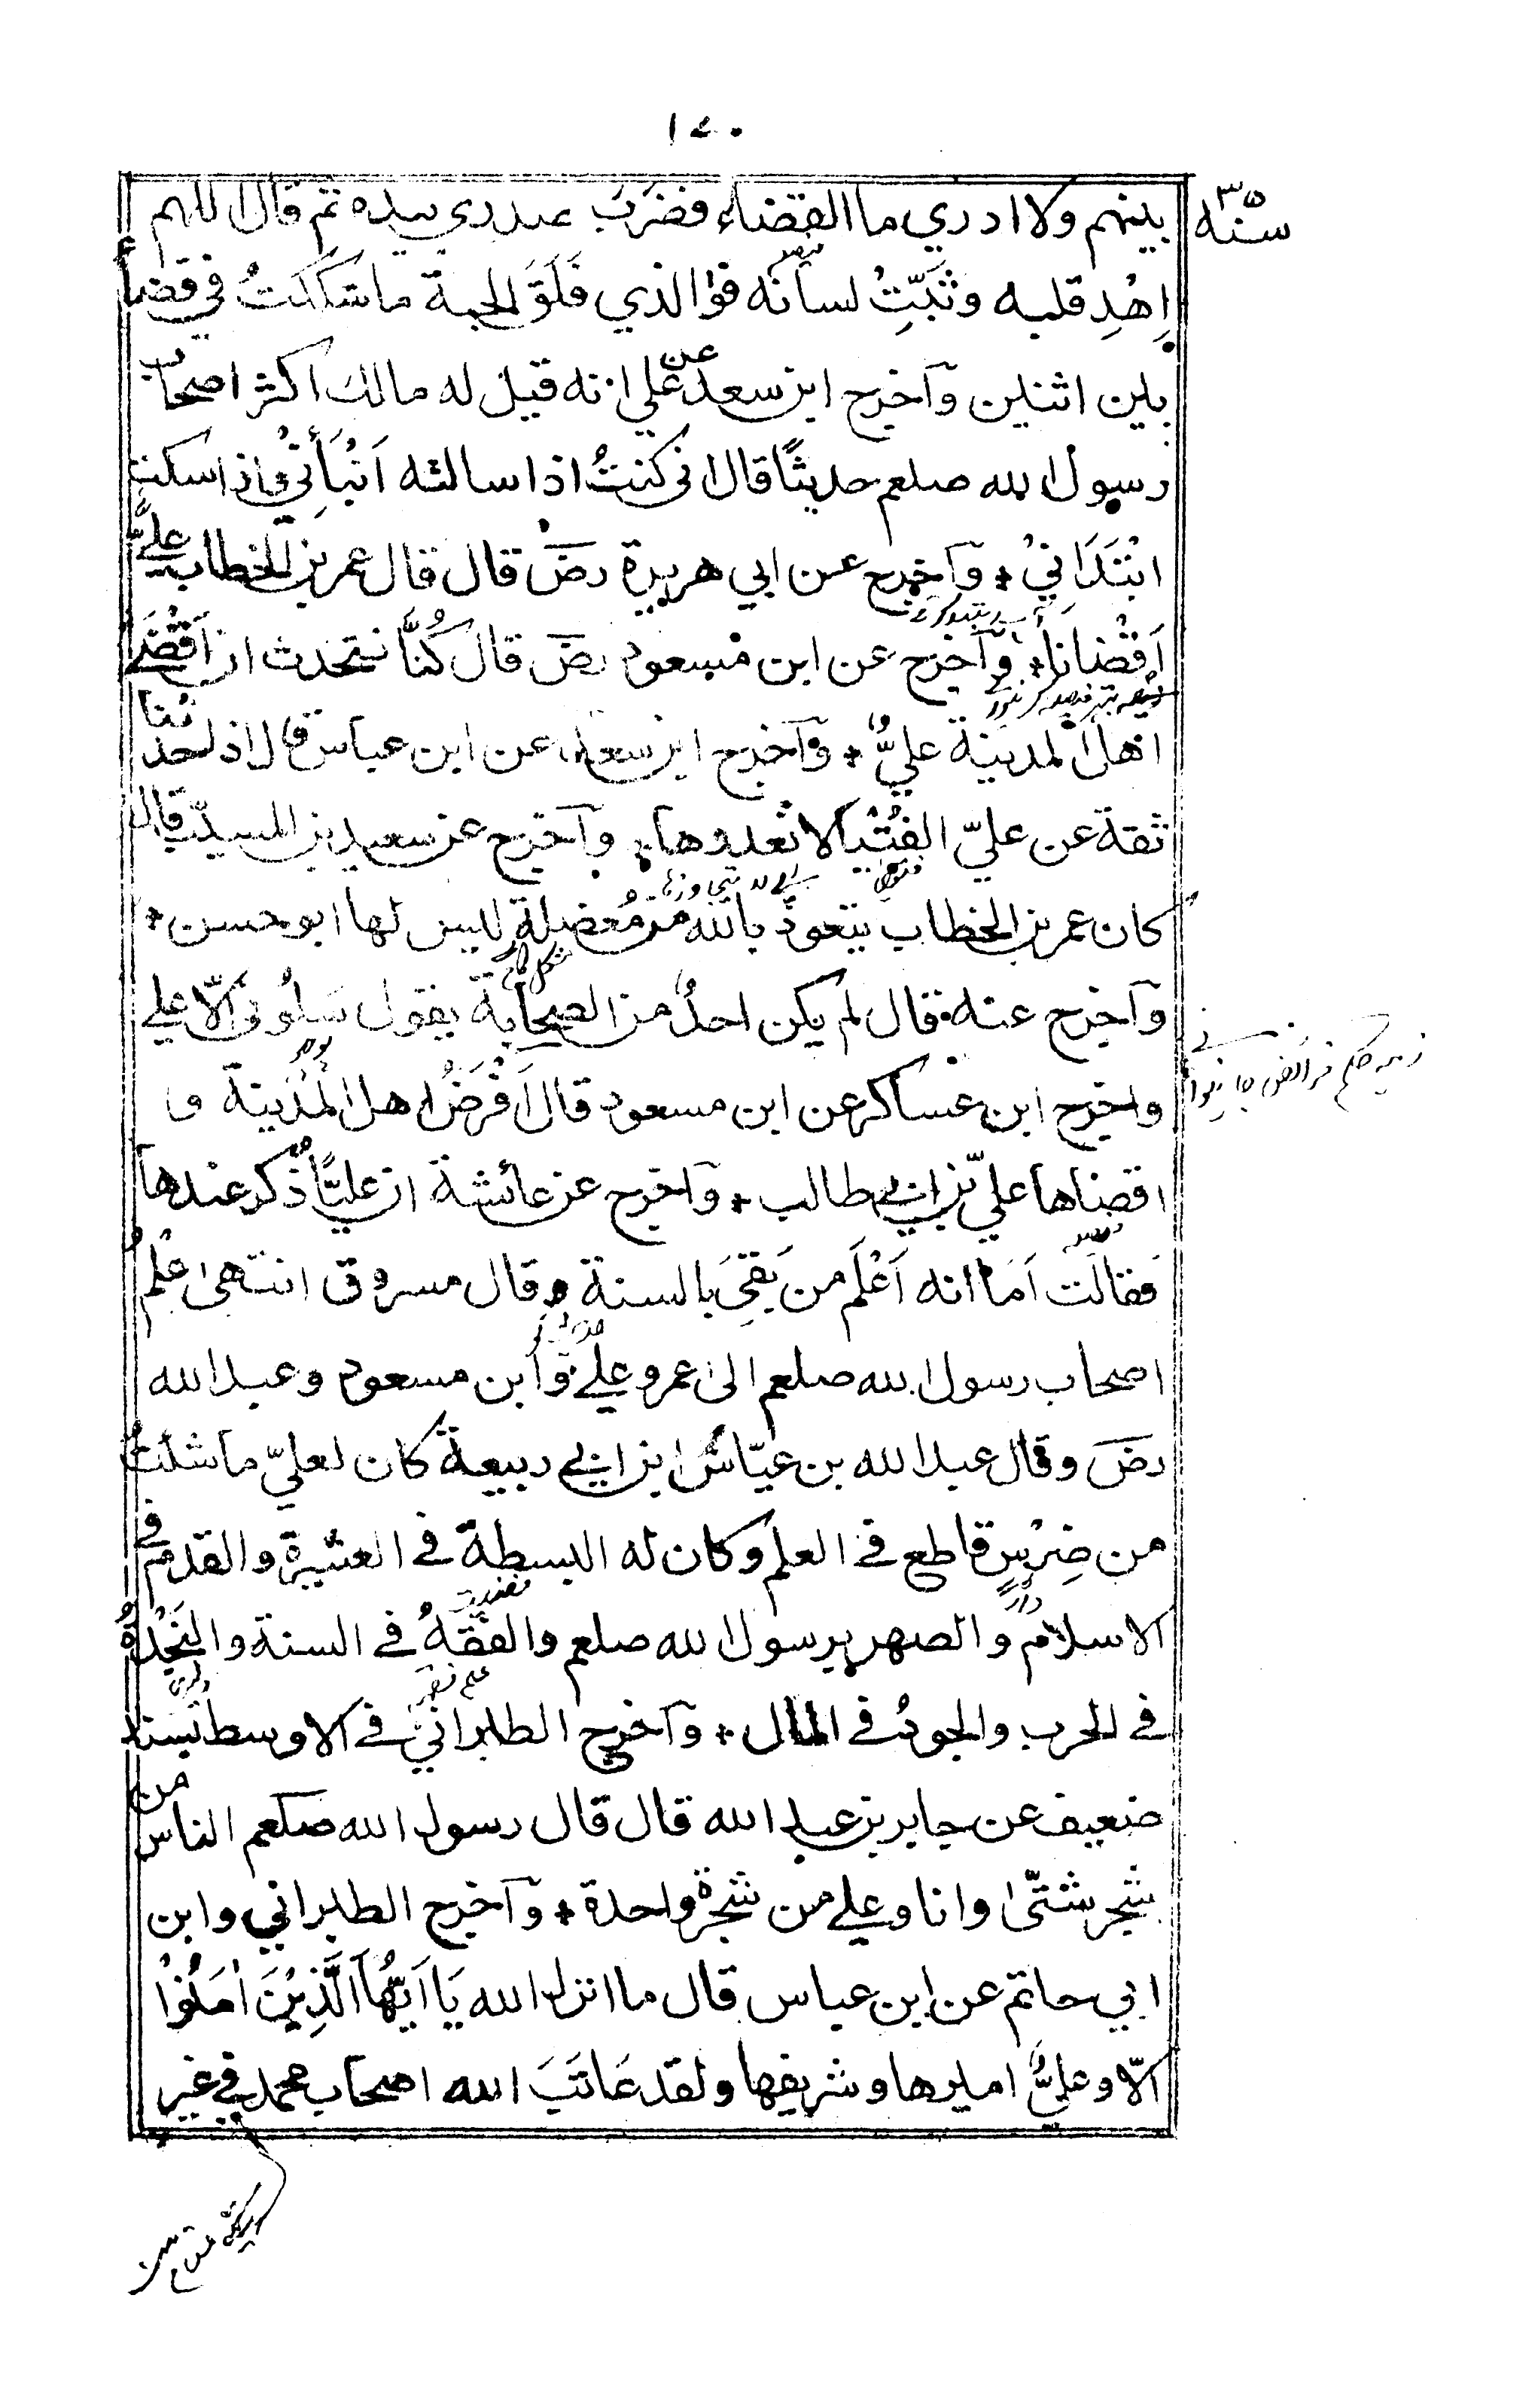 ١٧٠
سنه ٣٥
بينهم ولا ادري ما القضاء فضَرَبَ صدري بيده ثم قال اللهم
اِهْدِ قلبه وثَبِّتْ لسانه فوالذي فَلَقَ الحبة ما شككتُ في قضاء
بين اثنين وآخرج ابن سعد عن علي انه قيل له مالك اكثر اصحاب
رسول الله صلعم حديثًا قال اني كنتُ اذا سالته اَنْبَأَنِيْ واذا سكت
ابْتَدَاَنِيْ * وآخرج عن ابي هريرة رضَ قال قال عمر بن الخطاب عليٌّ
اَقْضَانَا * وآخرج عن ابن مسعود رضَ قال كُنَّا نتحدث ان اَقْضَے
اهل المدينة عليٌّ * وآخرج ابن سعد عن ابن عباس قال اذا حدثنا
ثقة عن عليّ الفُتْيا لا نعدوها * وآخرج عن سعيد بن المسيّب قال
كان عمر بن الخطاب يتعوذ بالله من مُعْضِلة ليس لها ابو حسن *
وآخرج عنه قال لم يكن احدٌ من الصحابة يقول سَلُوني الّا علي
واخرج ابن عساكر عن ابن مسعود قال اَفْرَضُ اهل المدينة و
اقضاها عليّ بن ابي طالب * وآخرج عن عائشة ان عليًّا ذُكر عندها
فقالت اَمَا انه اَعْلَم من بَقِيَ بالسنة وقال مسروق انتهى عِلْمُ
اصحاب رسول الله صلعم الى عمر وعليّ وابن مسعود وعبد الله
رضَ وقال عبد الله بن عيّاش ابن ابي ربيعة كان لعليّ ما شئتُ
من ضِرْسٍ قاطع في العلم وكان له البسطة في العشيرة والقدم في
الاسلام والصهر برسول الله صلعم والفقهُ في السنة والنَجْدةُ
في الحرب والجودُ في المال * وآخرج الطبرانيّ في الاوسط بسند
ضعيف عن جابر بن عبد الله قال قال رسول الله صلعم الناس من
شجر شتّى وانا وعلي من شجرة واحدة * وآخرج الطبراني وابن
ابي حاتم عن ابن عباس قال ما انزل الله يَا اَيُّهَا الَّذِيْنَ اٰمَنُوْا
الّا وعليٌّ اميرها وشريفها ولقد عَاتَبَ الله اصحاب محمد في غير